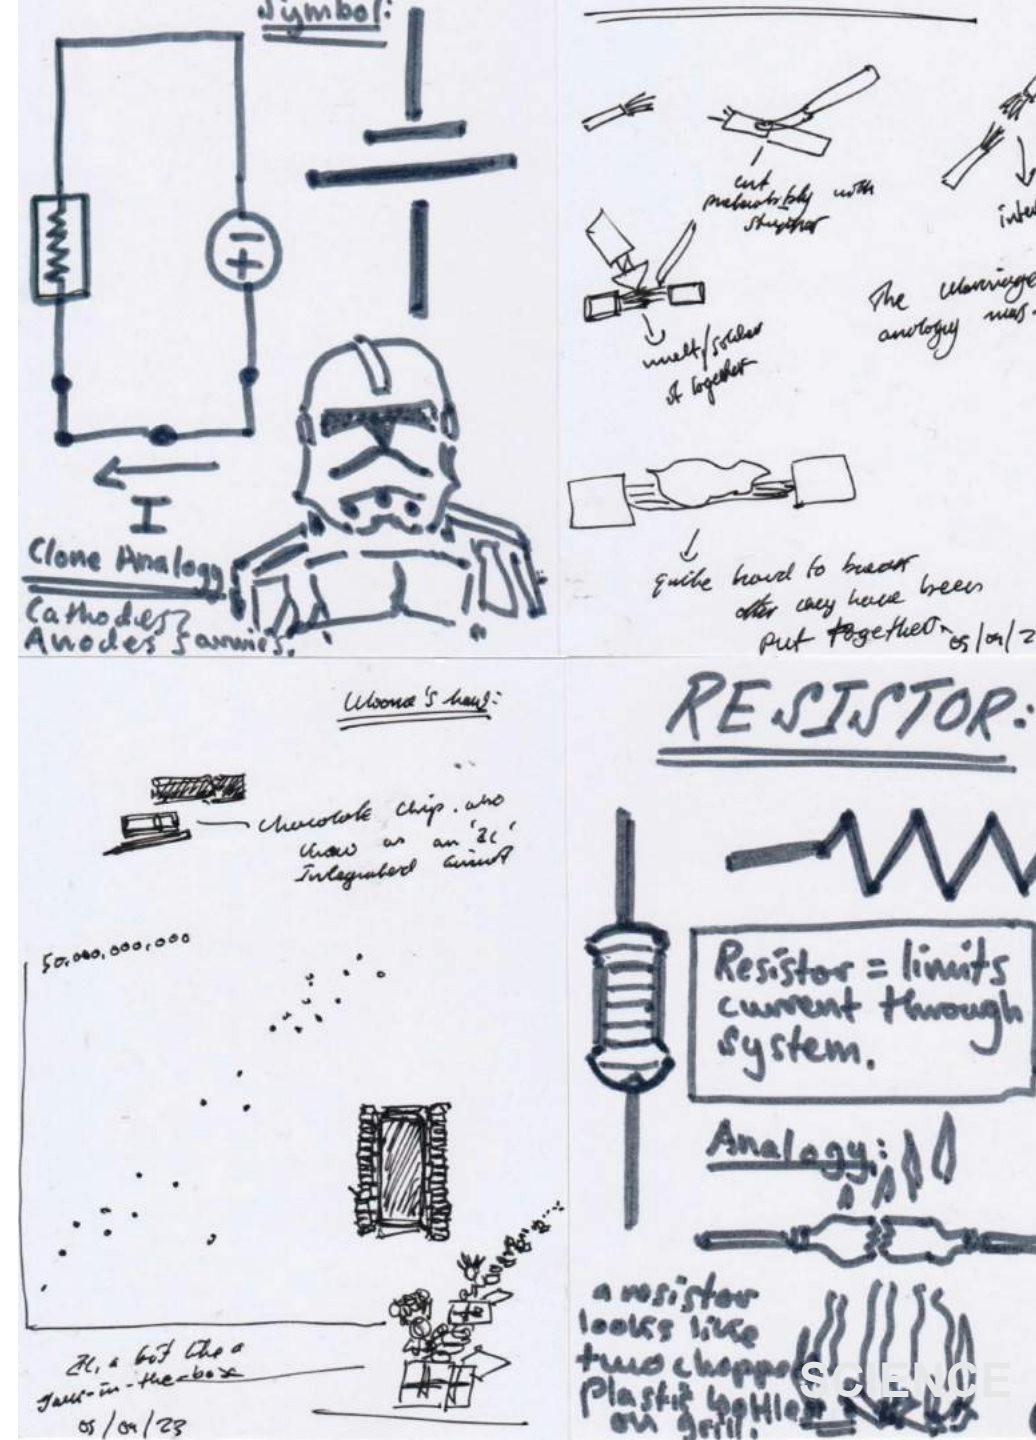 Symbol:
I
Clone Analogy
Cathodes?
Anodes
cut
with
melt/solder
it together
The
analogy
quite hard to break
after they have been
put together
Moore's law:
chocolate chip. also
know as an 'IC'
Integrated circuit
50,000,000,000
IC, a bit like a
Jack-in-the-box
05/04/23
RESISTOR:
Resistor = limits
current through
system.
Analogy:
a resistor
looks like
two chopped
Plastic bottles
on grill.
SCIENCE